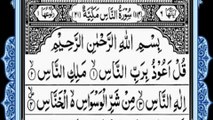 سُوْرَةُ النَّاسِ مَكِّيَّةٌ
بِسْمِ اللّٰهِ الرَّحْمٰنِ الرَّحِيْمِ
قُلْ اَعُوْذُ بِرَبِّ النَّاسِ ۙ مَلِكِ النَّاسِ ۙ
اِلٰهِ النَّاسِ ۙ مِنْ شَرِّ الْوَسْوَاسِ ۙ الْخَنَّاسِ